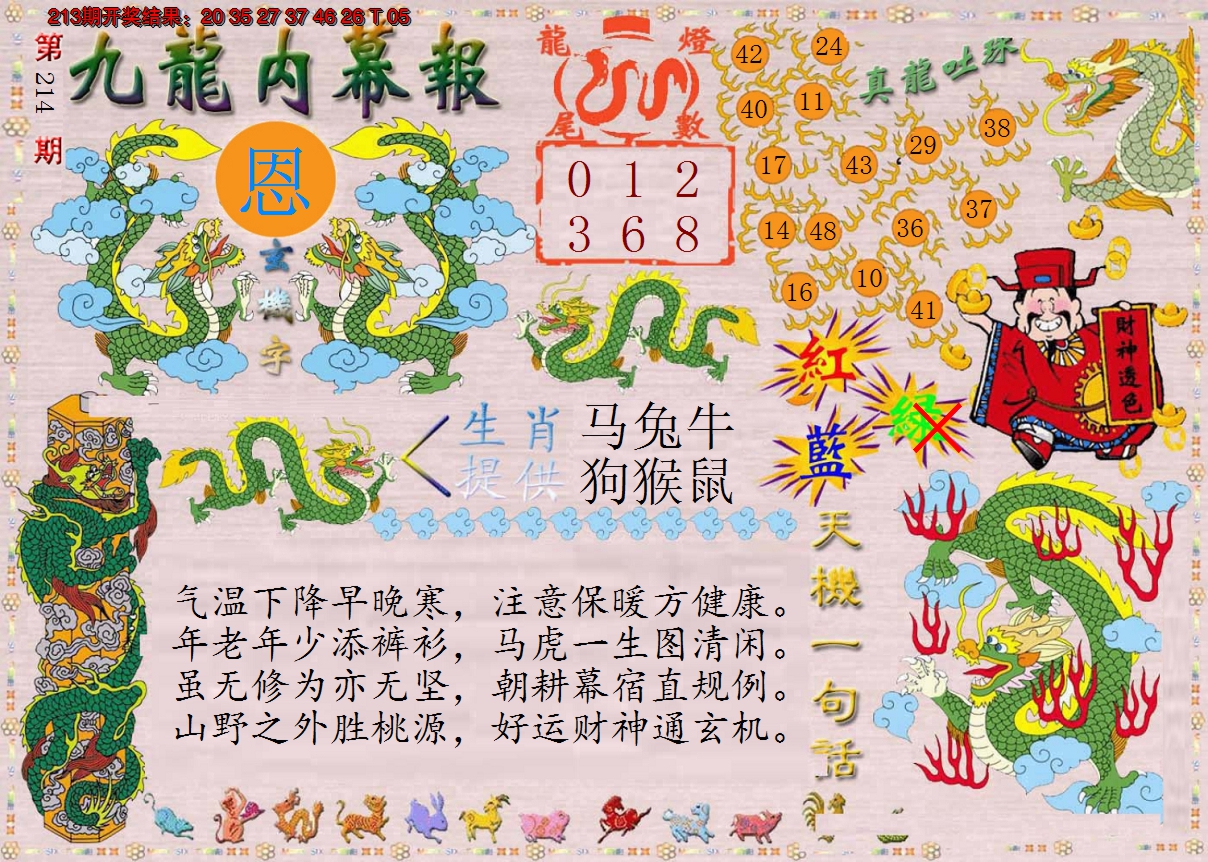 213期开奖结果：20 35 27 37 46 26 T 05
第214期
九龍内幕報
恩
玄機字
龍燈
尾數
0 1 2
3 6 8
真龍吐珠
42
24
40
11
29
38
17
43
37
14
48
36
10
16
41
財神透色
紅
綠
藍
生肖 马兔牛
提供 狗猴鼠
天機一句话
气温下降早晚寒，注意保暖方健康。
年老年少添裤衫，马虎一生图清闲。
虽无修为亦无坚，朝耕幕宿直规例。
山野之外胜桃源，好运财神通玄机。